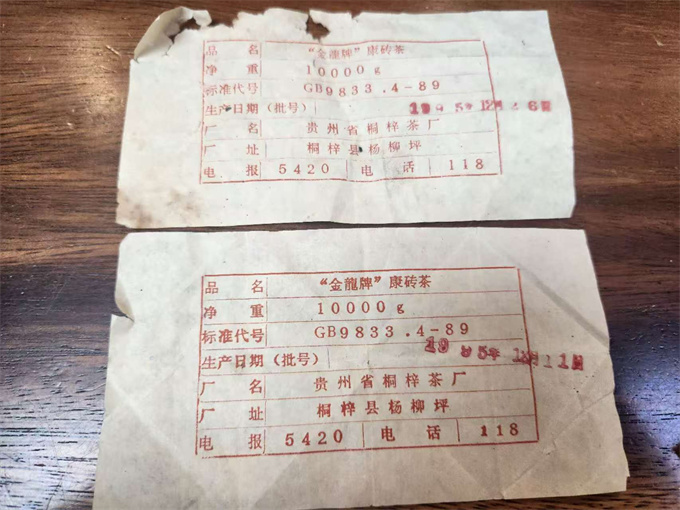 品 名 “金龍牌”康砖茶
净 重 10000g
标准代号 GB9833.4-89
生产日期（批号）
厂 名 贵州省桐梓茶厂
厂 址 桐梓县杨柳坪
电 报 5420 电 话 118
品 名 “金龍牌”康砖茶
净 重 10000g
标准代号 GB9833.4-89
生产日期（批号）
厂 名 贵州省桐梓茶厂
厂 址 桐梓县杨柳坪
电 报 5420 电 话 118